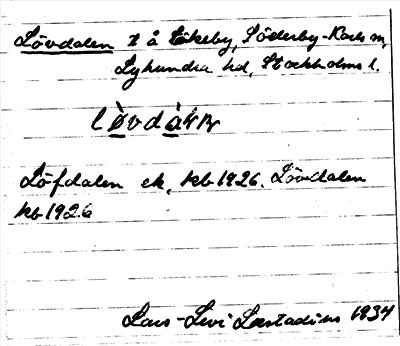 Lövdalen t å Eskeby, Söderby-Karls sn,
Lyhundra hd, Stockholms l.
Löfdalen ek. kb 1926. Lövdalen
kb 1926
Lars-Levi Læstadius 1934